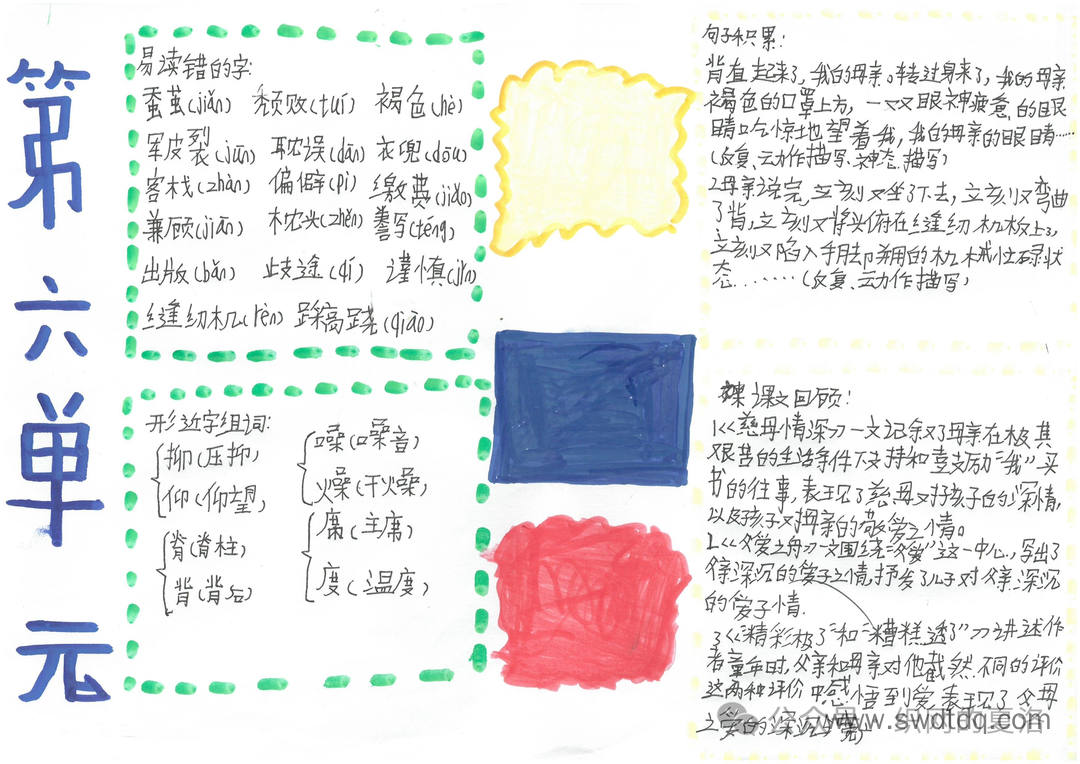 第六单元
易读错的字:
蚕茧(jiǎn) 颓败(tuí) 褐色(hè)
军皮裂(jūn) 耽误(dān) 衣兜(dōu)
客栈(zhàn) 偏僻(pì) 缴费(jiǎo)
兼顾(jiān) 枕头(zhěn) 誊写(téng)
出版(bǎn) 歧途(qí) 谨慎(jǐn)
缝纫机(rèn) 踩高跷(qiāo)
形近字组词:
抑(压抑)
仰(仰望)
脊(脊柱)
背(背后)
噪(噪音)
燥(干燥)
席(主席)
度(温度)
句子积累:
背直起来了,我的母亲。转过身来了,我的母亲
褐色的口罩上方,一双眼神疲惫的眼
睛吃惊地望着我,我的母亲的眼睛……
(反复、动作描写、神态描写)
2母亲说完,立刻又坐了下去,立刻又弯曲
了背,立刻又将头俯在缝纫机板上了,
立刻又陷入手脚并用的机械忙碌状
态……(反复、动作描写)
课文回顾:
1《慈母情深》一文记叙了母亲在极其
艰苦的生活条件下支持和鼓励“我”买
书的往事,表现了慈母对孩子的深情,
以及孩子对母亲的敬爱之情。
2《父爱之舟》一文围绕“父爱”这一中心,写出了
父亲深沉的爱子之情,抒发了儿子对父亲深沉
的爱子情.
3《“精彩极了”和“糟糕透了”》讲述作
者童年时,父亲和母亲对他截然不同的评价
这两种评价中感悟到爱,表现了父母
之爱的深沉
www.swdtdq.com